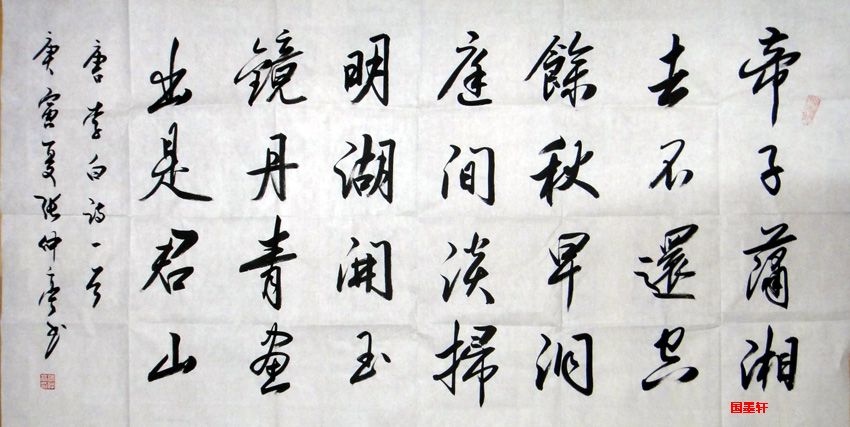 帝子瀟湘
去不還空
餘秋草洞
庭間淡掃
明湖開玉
鏡丹青畫
出是君山
唐李白诗一首
庚寅夏张仲亭书
国墨轩